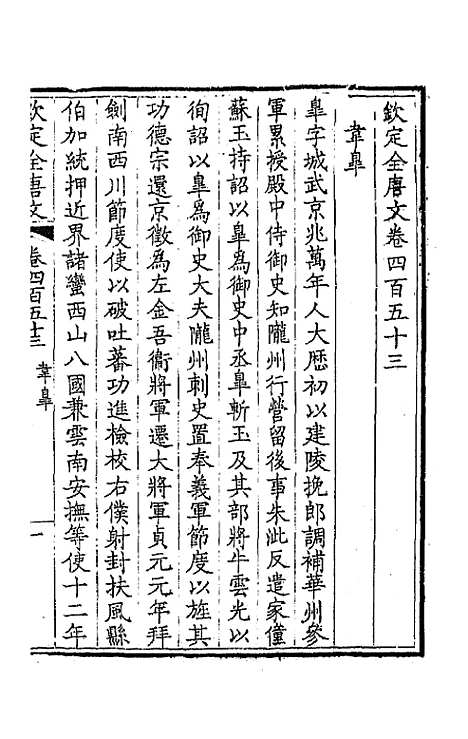 欽定全唐文卷四百五十三
韋皐
皐字城武京兆萬年人大歷初以建陵挽郎調補華州參
軍累授殿中侍御史知隴州行營留後事朱泚反遣家僮
蘇玉持詔以皐為御史中丞皐斬玉及其部將牛雲光以
徇詔以皐為御史大夫隴州刺史置奉義軍節度以旌其
功德宗還京徵為左金吾衞將軍遷大將軍貞元元年拜
劍南西川節度使以破吐蕃功進檢校右僕射封扶風縣
伯加統押近界諸蠻西山八國兼雲南安撫等使十二年
欽定全唐文 卷四百五十三 韋皐 一